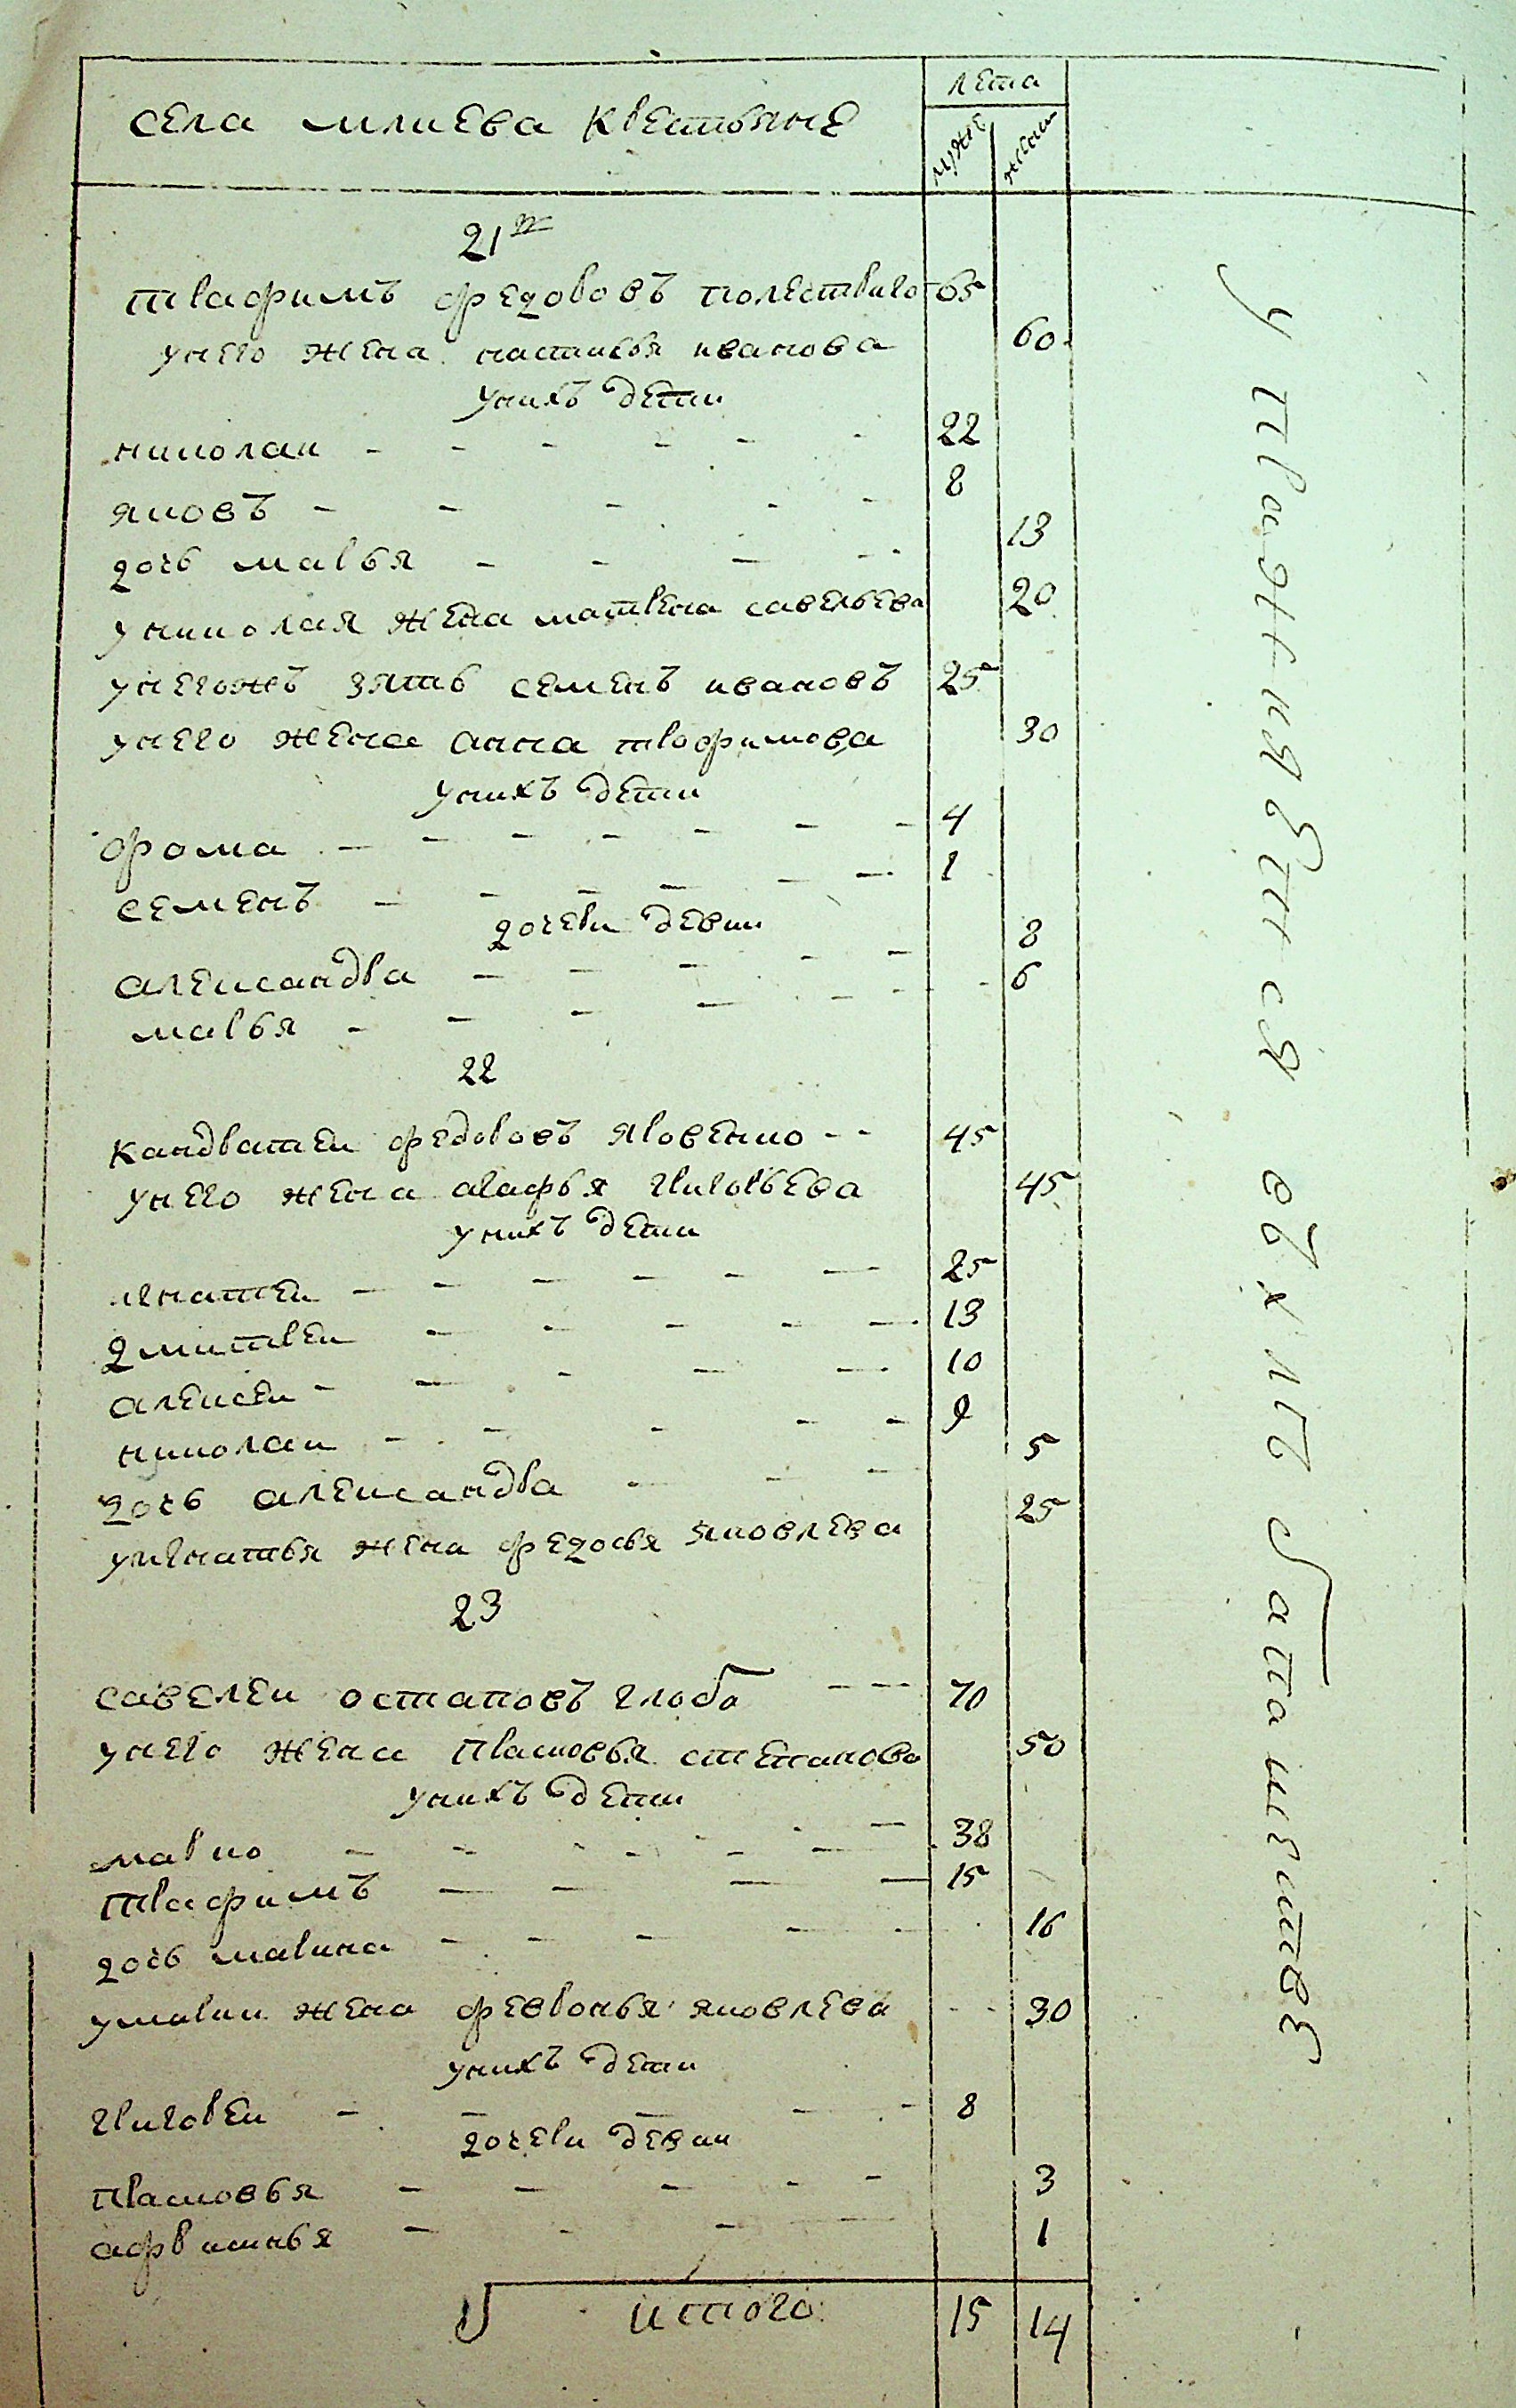 села млиева крестьяне
лета
муже
женш
21й
трафимъ федоровъ полестриго 65
унего жена настасья иванова 60
унихъ дети
николаи 22
яковъ 8
дочь марья 13
униколая жена матрена савельева 20
унегожъ зять семенъ ивановъ 25
унего жена анна трофимова 30
унихъ дети
фома 4
семенъ 1
дочери девки
александра 8
марья 6
22
кандратеи федоровъ яровенко 45
унего жена агафья григорьева 45
унихъ дети
игнатеи 25
дмитреи 13
алексеи 10
николаи 9
дочь александра 5
уигнатья жена федосья яковлева 25
23
савелеи остаповъ глоба 70
унего жена прасковья степанова 50
унихъ дети
марко 38
трафимъ 15
дочь марина 16
умарки жена февронья яковлева 30
унихъ дети
григореи 8
дочери девки
прасковья 3
афросинья 1
итого 15 14
упражняется вхлебапашестве